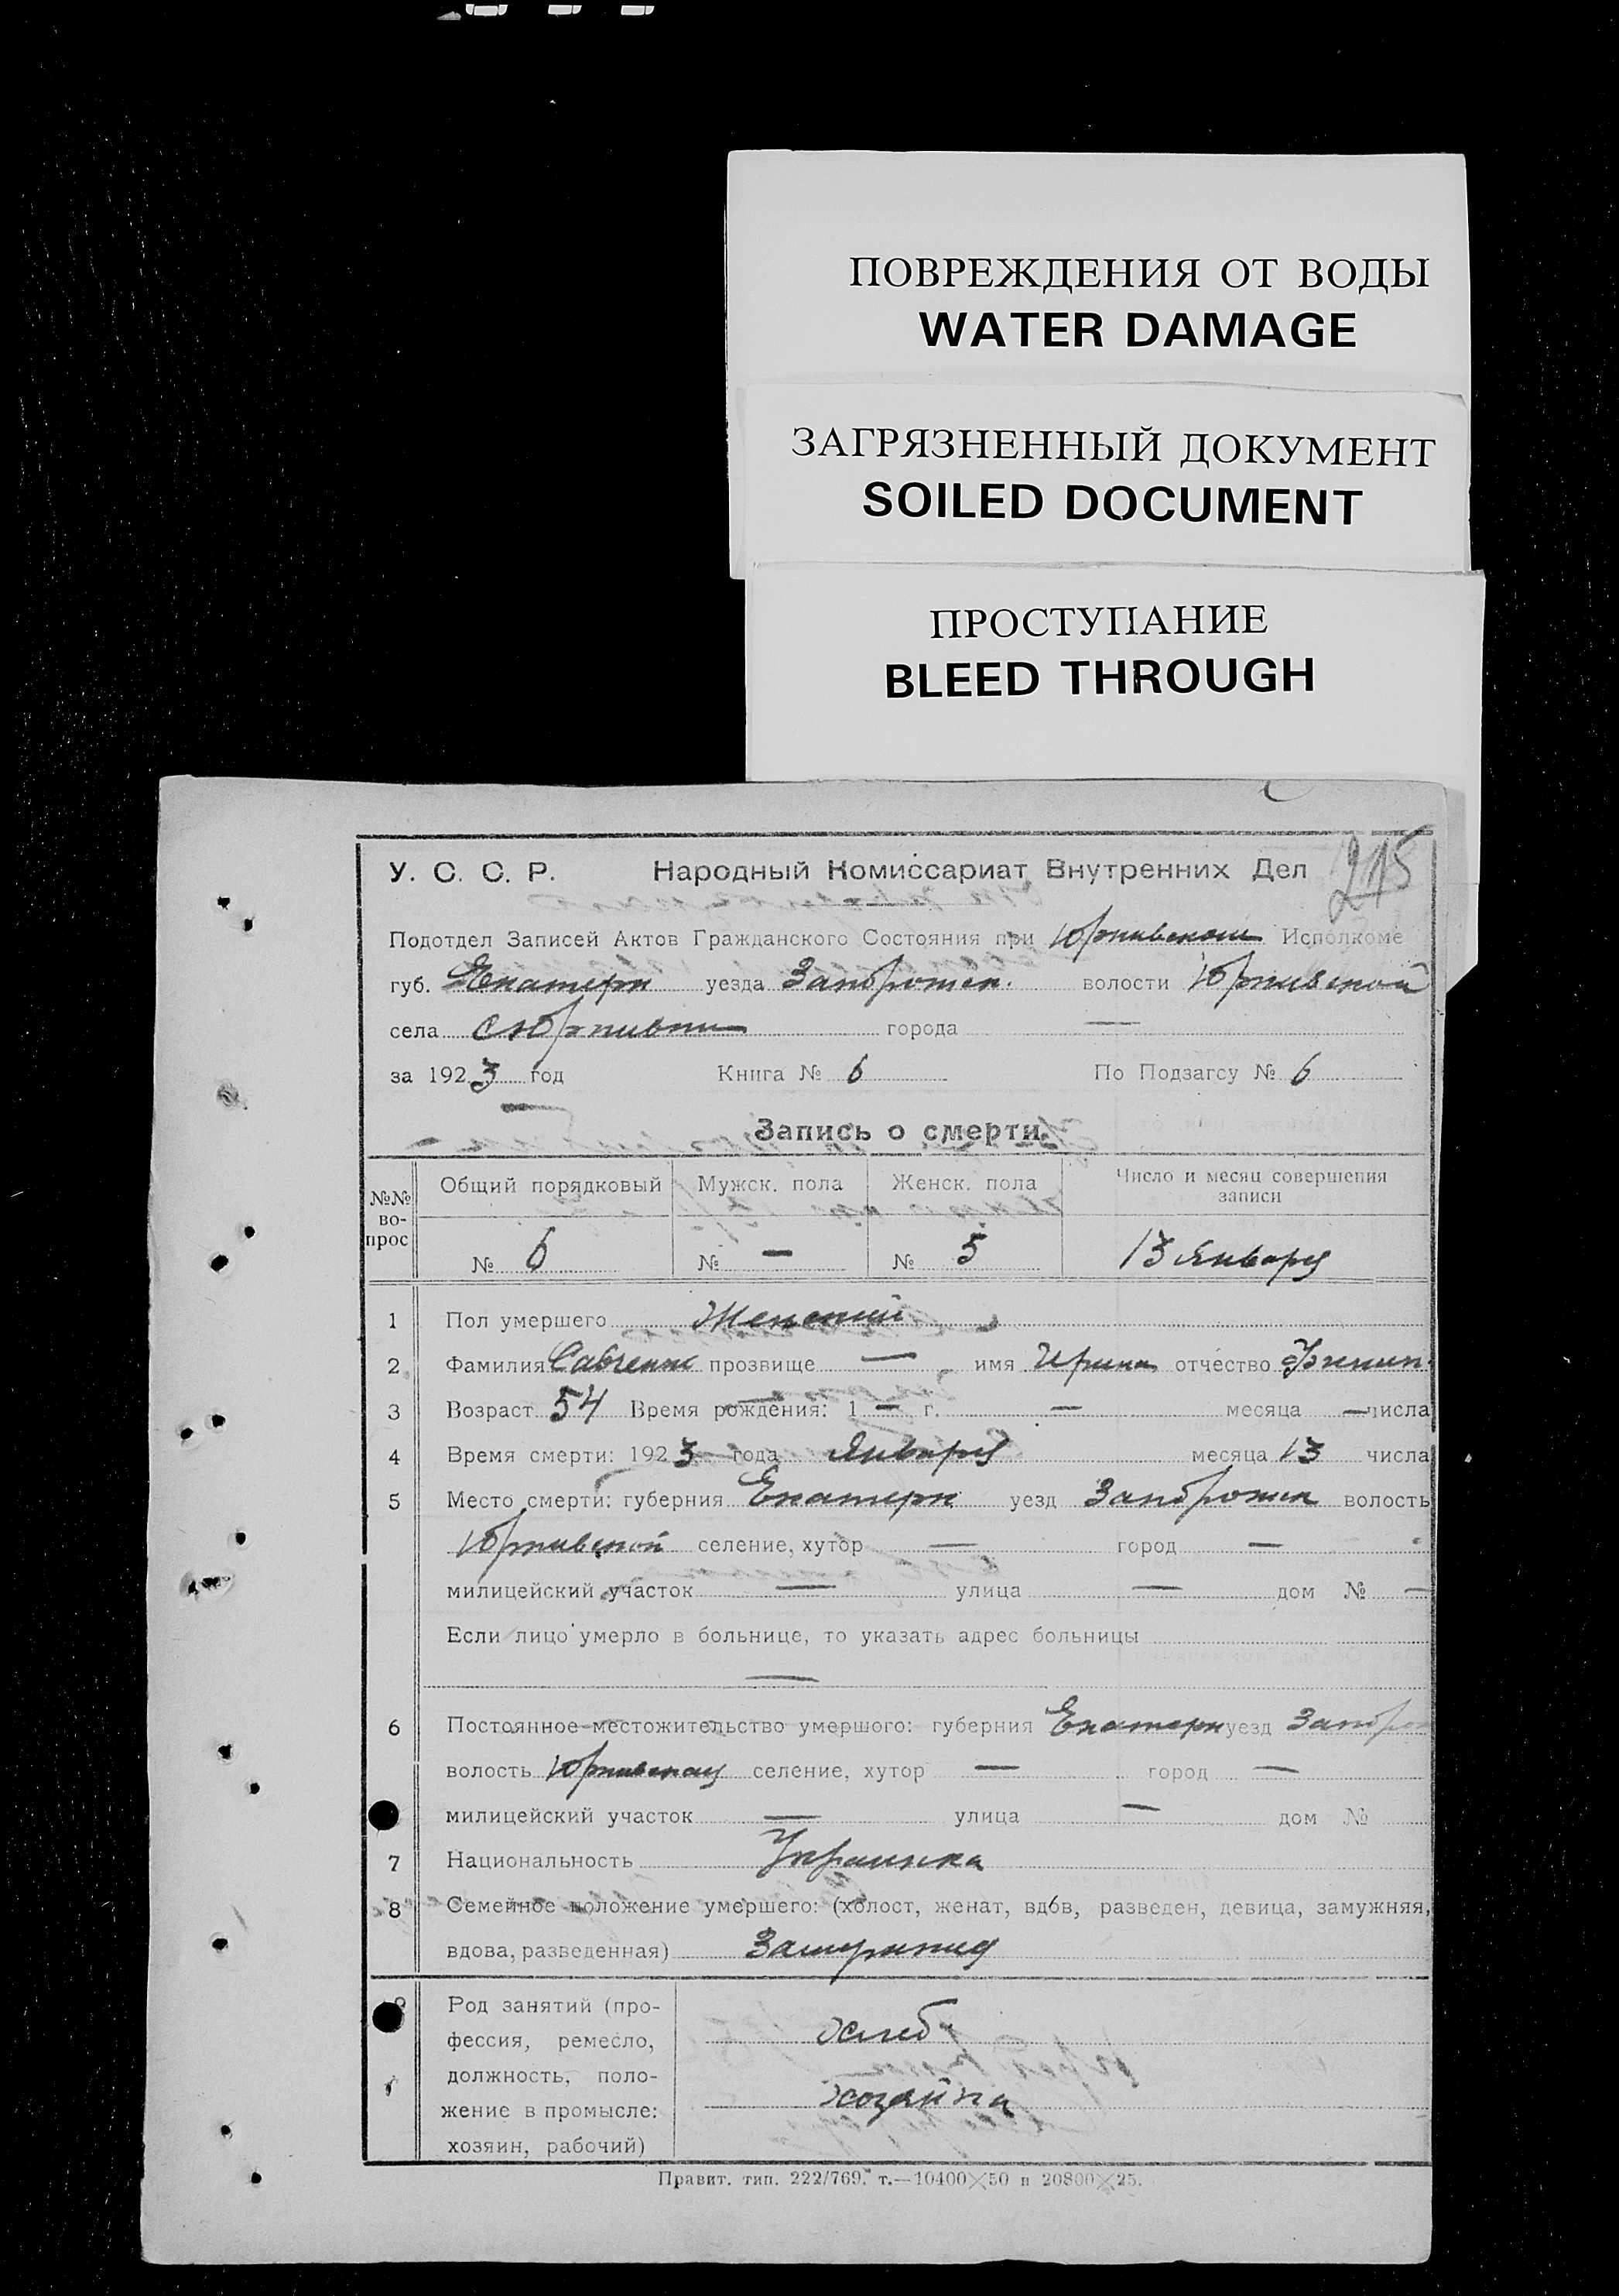 ПОВРЕЖДЕНИЯ ОТ ВОДЫ
WATER DAMAGE
ЗАГРЯЗНЕННЫЙ ДОКУМЕНТ
SOILED DOCUMENT
ПРОСТУПАНИЕ
BLEED THROUGH
215
У. С. С. Р. Народный Комиссариат Внутренних Дел
Подотдел Записей Актов Гражданского Состояния при Юркивском Исполкоме
губ. Екатерн уезда Запорожск. волости Юркивской
села с Юркивки города —
за 1923 год Книга № 6 По Подзагсу № 6
Запись о смерти
№№ вопрос Общий порядковый Мужск. пола Женск. пола Число и месяц совершения записи
№ 6 № — № 5 13 Января
1 Пол умершего Женский
2 Фамилия Савченко прозвище — имя Ирина отчество
3 Возраст 54 Время рождения: 1 — г. — месяца — числа
4 Время смерти: 1923 года Января месяца 13 числа
5 Место смерти: губерния Екатерн уезд Запорожск волость
Юркивской селение, хутор — город —
милицейский участок — улица — дом № —
Если лицо умерло в больнице, то указать адрес больницы
—
6 Постоянное местожительство умершого: губерния Екатерн уезд Запорож
волость Юркивская селение, хутор — город —
милицейский участок — улица — дом №
7 Национальность Украинка
8 Семейное положение умершего: (холост, женат, вдов, разведен, девица, замужняя,
вдова, разведенная) Замужняя
9 Род занятий (про-
фессия, ремесло, хлеб.
должность, поло-
жение в промысле: хозяйка
хозяин, рабочий)
Правит. тип. 222/769. т.—10400×50 и 20800×25.